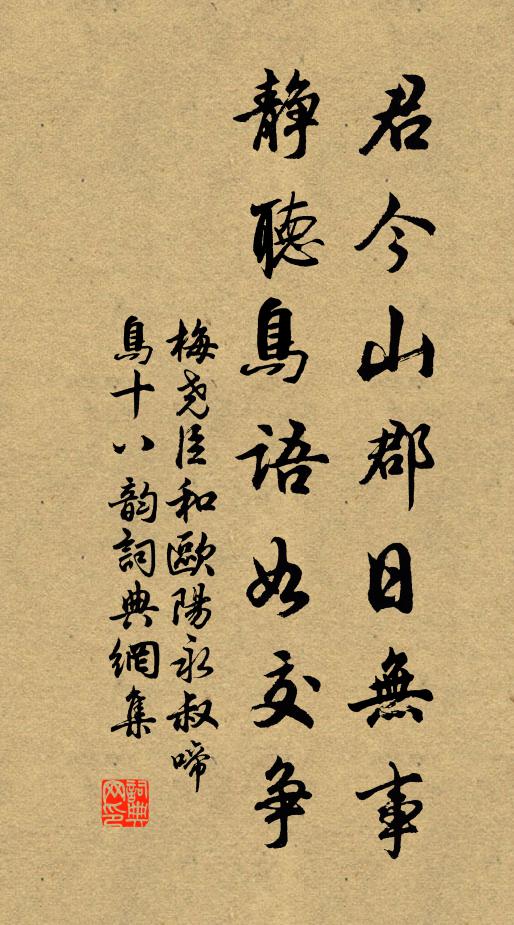 君今山郡日無事
静聽鳥語如交争
梅尧臣和歐陽永叔啼
鳥十八韵詞典網集
詞典
网印